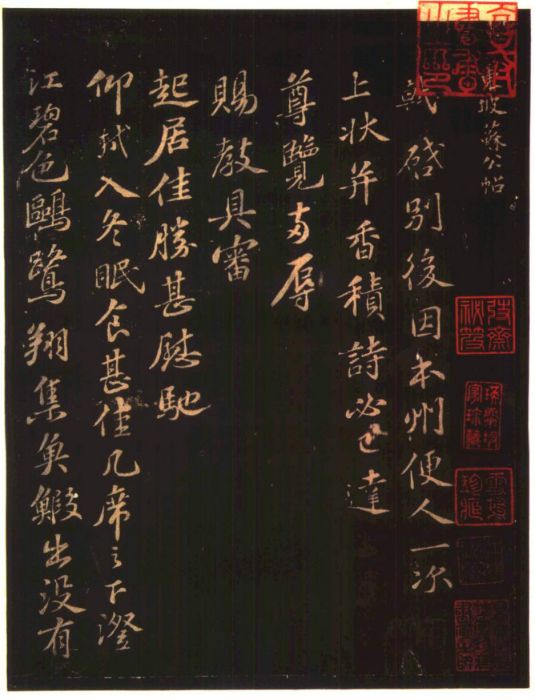 東坡蘇公帖
軾啓別後因本州便人一次
上狀并香積詩必已達
尊覽前辱
賜教具審
起居佳勝甚慰馳
仰軾入冬眠食甚佳几席之下澄
江碧色鷗鷺翔集魚鰕出沒有